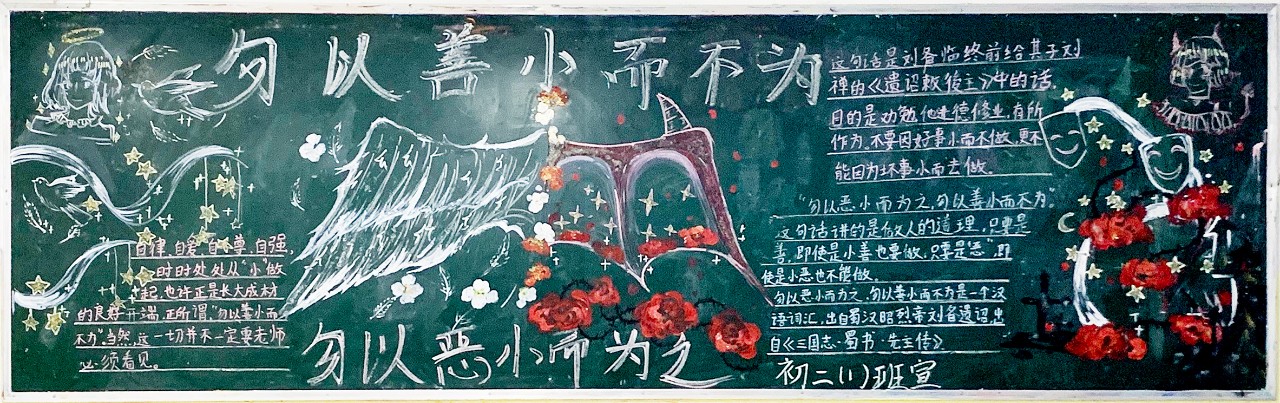 勿以善小而不为
自律,自爱,自尊,自强,
时时处处从“小”做
起,也许正是长大成材
的良好开端,正所谓,“勿以善小而
不为”当然,这一切并不一定要老师
必须看见。
勿以恶小而为之
这句话是刘备临终前给其子刘
禅的《遗诏敕后主》中的话,
目的是劝勉他进德修业,有所
作为,不要因好事小而不做,更不
能因为坏事小而去做。
“勿以恶小而为之,勿以善小而不为”
这句话讲的是做人的道理,只要是
善,即使是小善也要做,只要是“恶”,即
使是小恶也不能做
勿以恶小而为之,勿以善小而不为是一个汉
语词汇,出自蜀汉昭烈帝刘备遗诏,出
自《三国志·蜀书·先主传》
初二(1)班宣